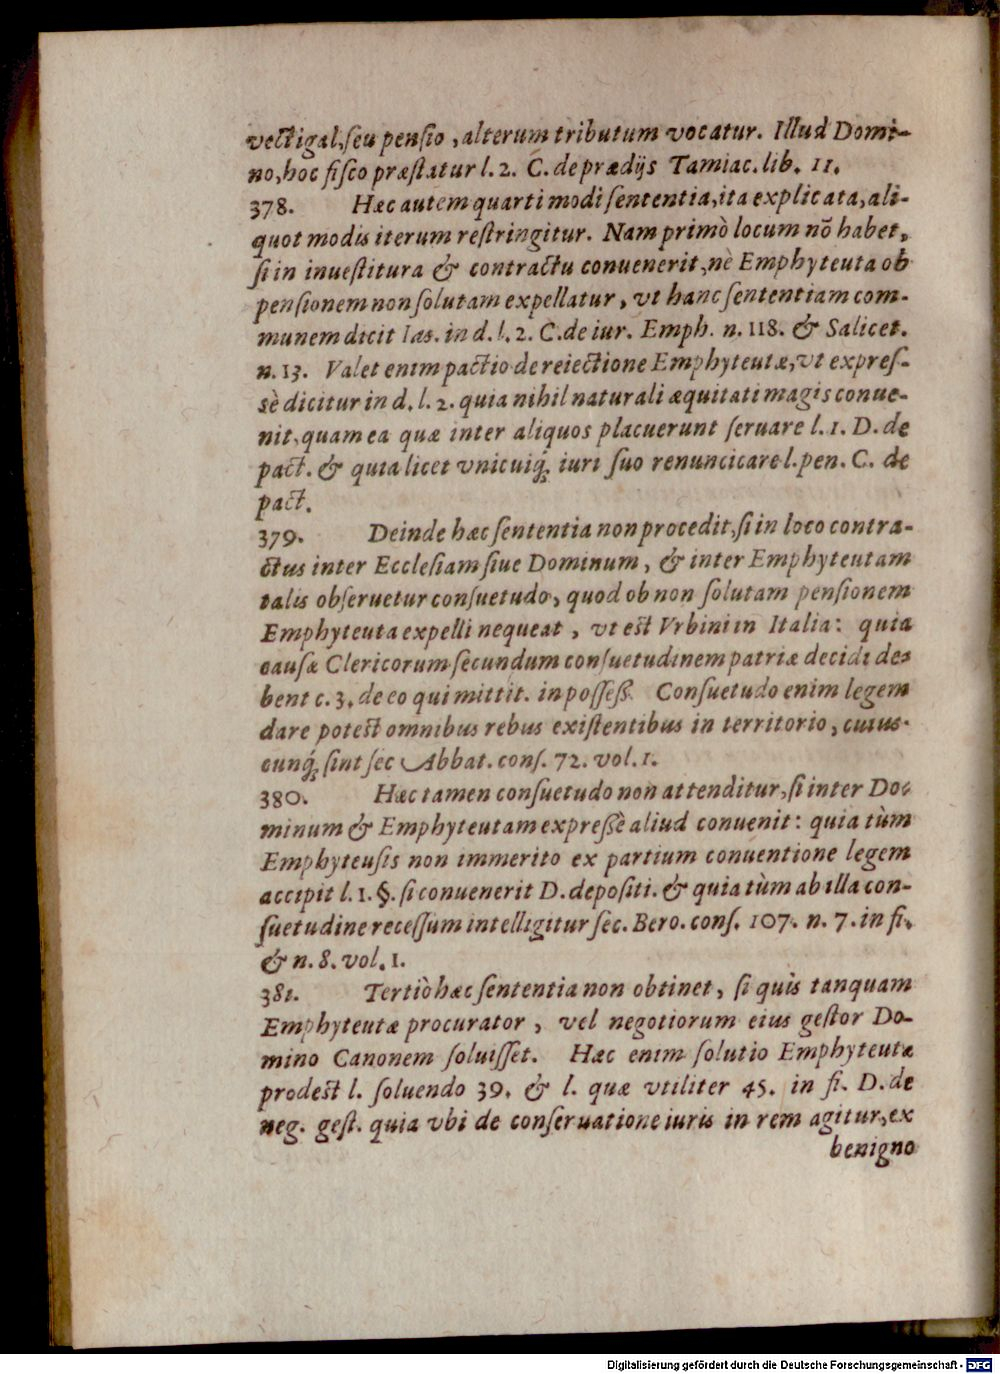 vectigal, ſeu penſio, alterum tributum vocatur. Illud Domi-
no, hoc fiſco præſtatur l. 2. C. de prædijs Tamiac. lib. 11.
378. Hæc autem quarti modi ſententia, ita explicata, ali-
quot modis iterum reſtringitur. Nam primò locum nõ habet,
ſi in inueſtitura & contractu conuenerit, nè Emphyteuta ob
penſionem non ſolutam expellatur, vt hanc ſententiam com-
munem dicit Ias. in d. l. 2. C. de iur. Emph. n. 118. & Salicet.
n. 13. Valet enim pactio de reiectione Emphyteutæ, vt expreſ-
sè dicitur in d. l. 2. quia nihil naturali æquitati magis conue-
nit, quam ea quæ inter aliquos placuerunt ſeruare l. 1. D. de
pact. & quia licet vnicuiq́; iuri ſuo renuncicare l. pen. C. de
pact.
379. Deinde hæc ſententia non procedit, ſi in loco contra-
ctus inter Eccleſiam ſiue Dominum, & inter Emphyteutam
talis obſeruetur conſuetudo, quod ob non ſolutam penſionem
Emphyteuta expelli nequeat, vt eſt Vrbini in Italia: quia
cauſæ Clericorum ſecundum conſuetudinem patriæ decidi de-
bent c. 3. de eo qui mittit. in poſſeß. Conſuetudo enim legem
dare poteſt omnibus rebus exiſtentibus in territorio, cuius-
cunq́; ſint ſec Abbat. conſ. 72. vol. 1.
380. Hæc tamen conſuetudo non attenditur, ſi inter Do-
minum & Emphyteutam expreßè aliud conuenit: quia tùm
Emphyteuſis non immerito ex partium conuentione legem
accipit l. 1. §. ſi conuenerit D. depoſiti. & quia tùm ab illa con-
ſuetudine receſſum intelligitur ſec. Bero. conſ. 107. n. 7. in fi.
& n. 8. vol. 1.
381. Tertiò hæc ſententia non obtinet, ſi quìs tanquam
Emphyteutæ procurator, vel negotiorum eius geſtor Do-
mino Canonem ſoluiſſet. Hæc enim ſolutio Emphyteutæ
prodeſt l. ſoluendo 39. & l. quæ vtiliter 45. in fi. D. de
neg. geſt. quia vbi de conſeruatione iuris in rem agitur, ex
benigno
Digitalisierung gefördert durch die Deutsche Forschungsgemeinschaft - DFG